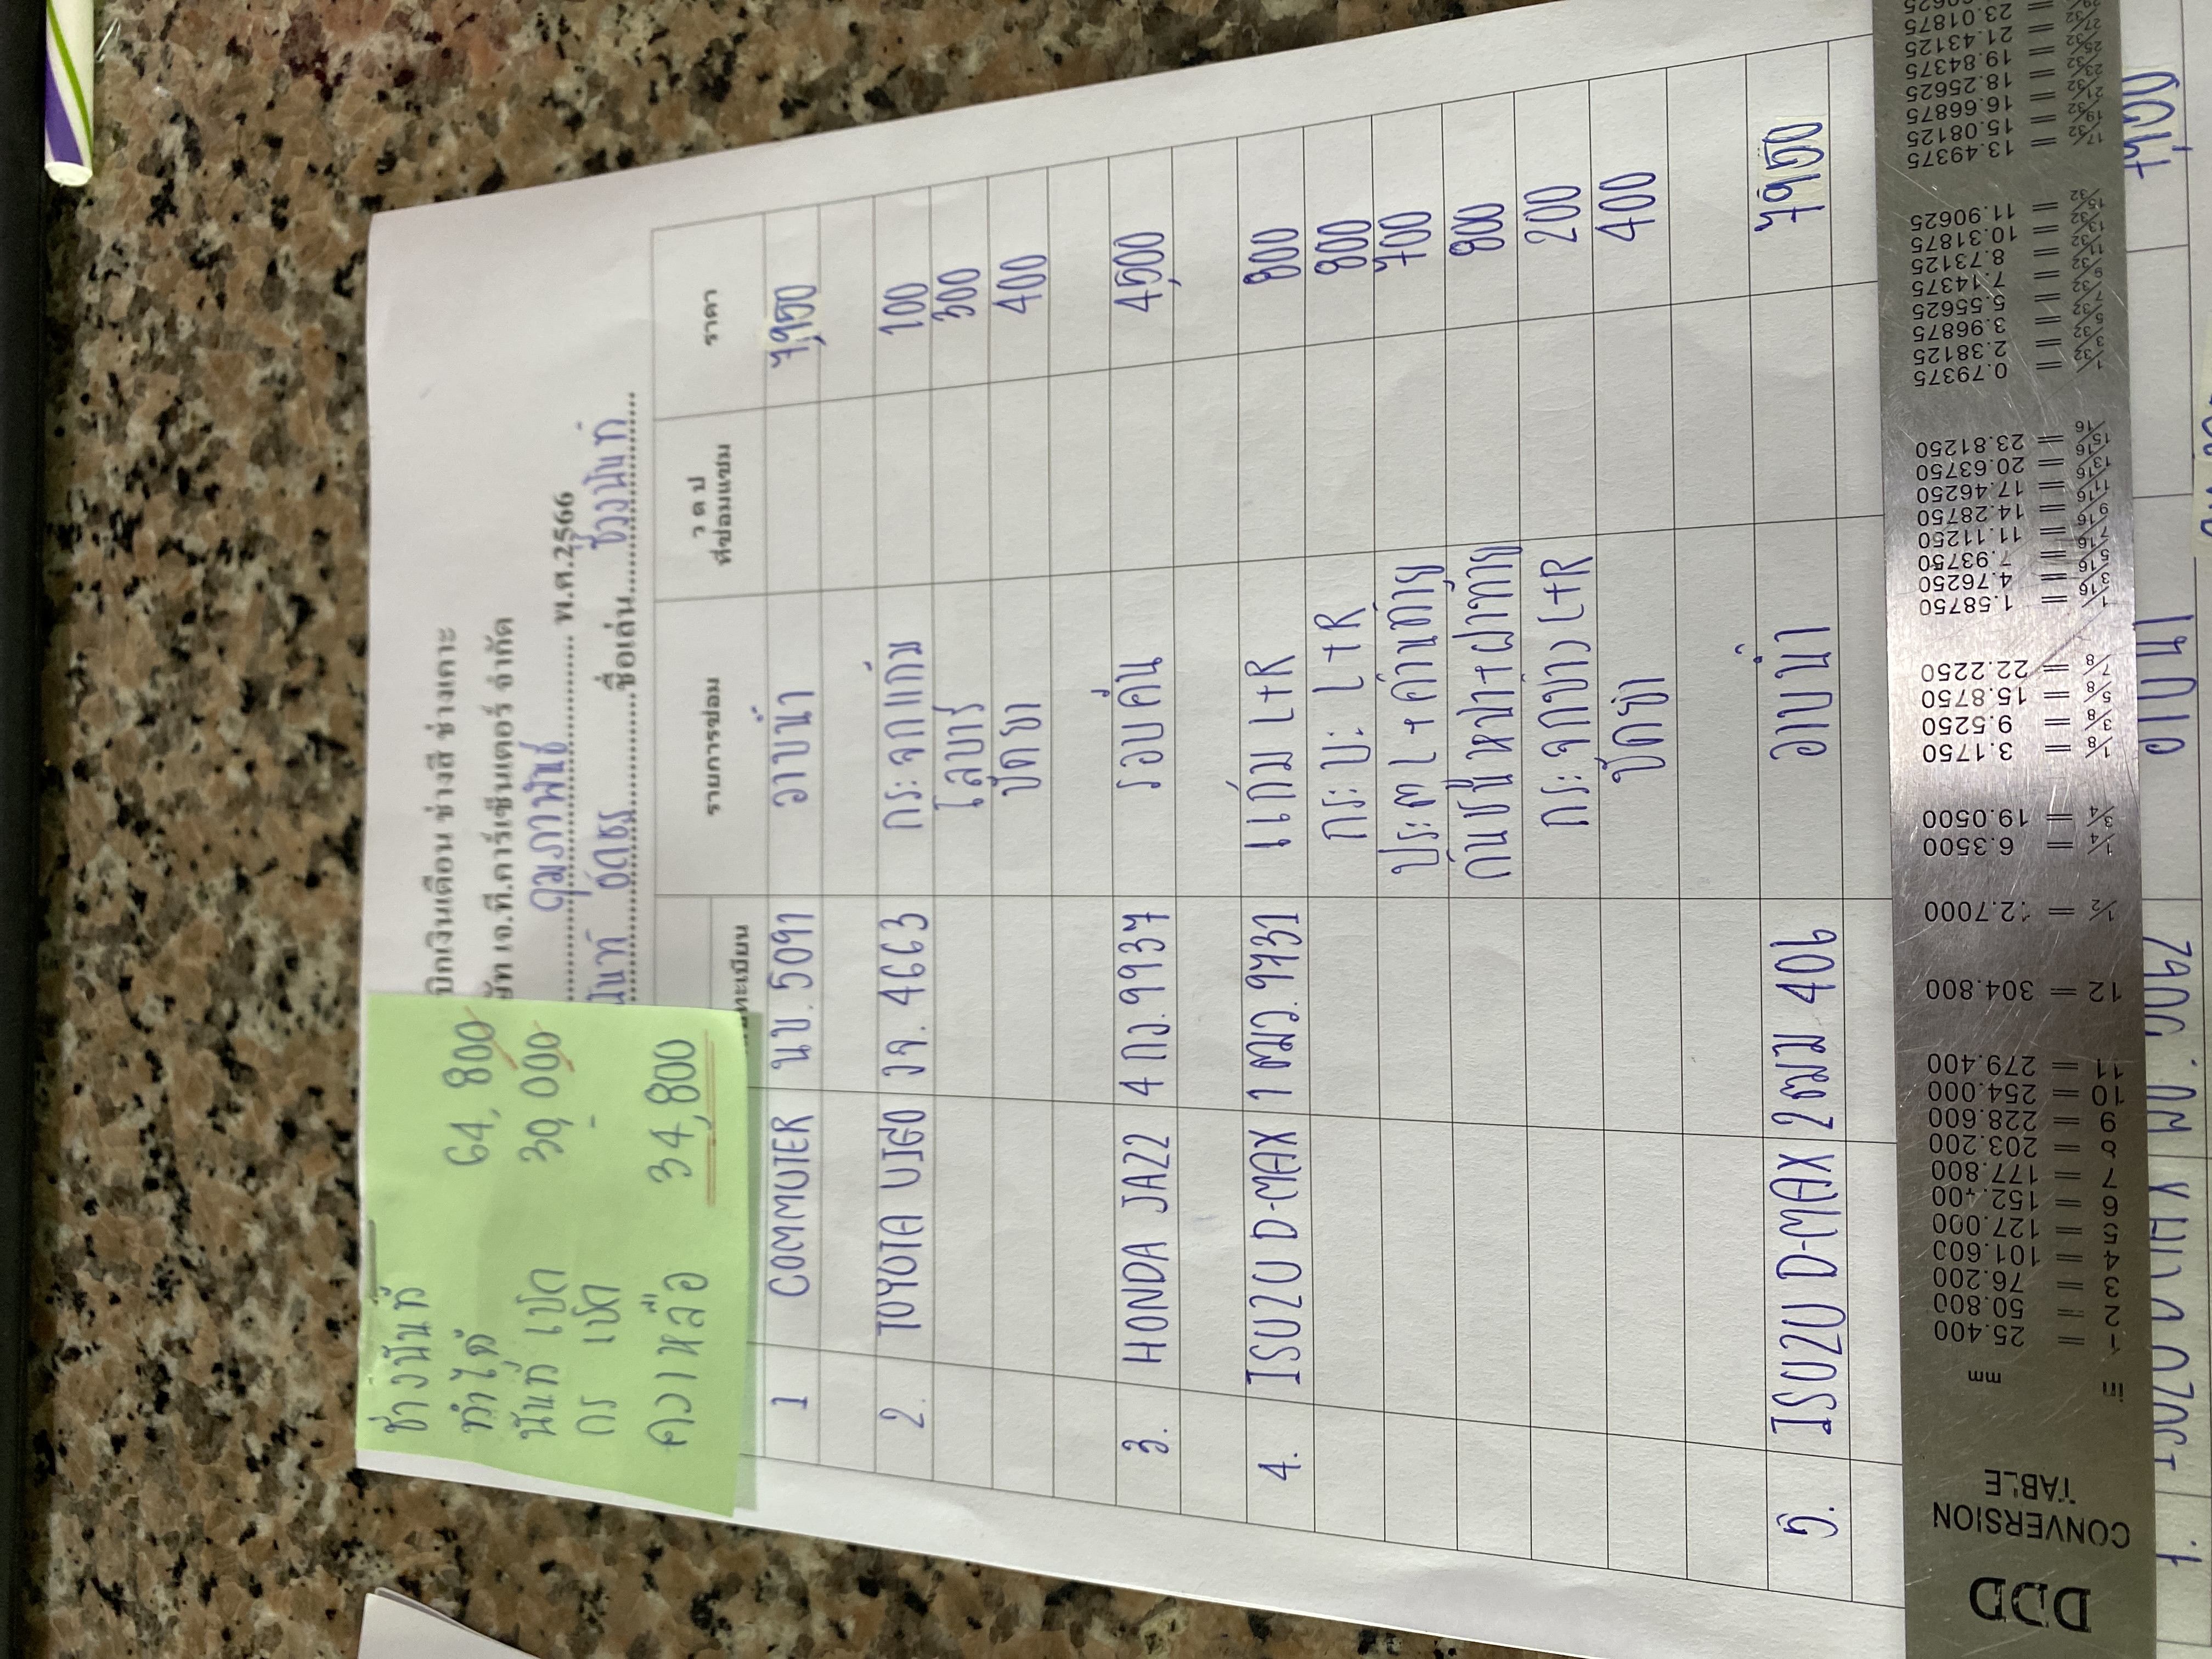 ช่างนันท์
ทำได้ 64,800
นันท์ เบิก 30,000
กร เบิก -
คงเหลือ 34,800
เบิกเงินเดือน ช่างสี ช่างเคาะ
เอ.ที.คาร์เซ็นเตอร์ จำกัด
กุมภาพันธ์ พ.ศ.2566
ชื่อเล่น ช่างนันท์
ทะเบียน รายการซ่อม ว ด ป ที่ซ่อมแซม ราคา
1 COMMUTER นข. 5091 อาบน้ำ 7,950
2. TOYOTA VIGO วจ. 4663 กระจกแก้ม 100
โลบาร์ 300
ขัดยา 400
3. HONDA JAZZ 4 กว. 9937 รอบคัน 4,500
4. ISUZU D-MAX 1 ฒว. 9731 แก้ม L+R 800
กระบะ L+R 800
700
800
กระจกข้าง L+R 200
ขัดยา 400
5. ISUZU D-MAX 2ฒม 406 อาบน้ำ 7,950
DDD
CONVERSION
TABLE
in mm
1 = 25.400
2 = 50.800
3 = 76.200
4 = 101.600
5 = 127.000
6 = 152.400
7 = 177.800
8 = 203.200
9 = 228.600
10 = 254.000
11 = 279.400
12 = 304.800
1/2 = 12.7000
1/4 = 6.3500
3/4 = 19.0500
1/8 = 3.1750
3/8 = 9.5250
5/8 = 15.8750
7/8 = 22.2250
1/16 = 1.58750
3/16 = 4.76250
5/16 = 7.93750
7/16 = 11.11250
9/16 = 14.28750
11/16 = 17.46250
13/16 = 20.63750
15/16 = 23.81250
1/32 = 0.79375
3/32 = 2.38125
5/32 = 3.96875
7/32 = 5.55625
9/32 = 7.14375
11/32 = 8.73125
13/32 = 10.31875
15/32 = 11.90625
17/32 = 13.49375
19/32 = 15.08125
21/32 = 16.66875
23/32 = 18.25625
25/32 = 19.84375
27/32 = 21.43125
29/32 = 23.01875